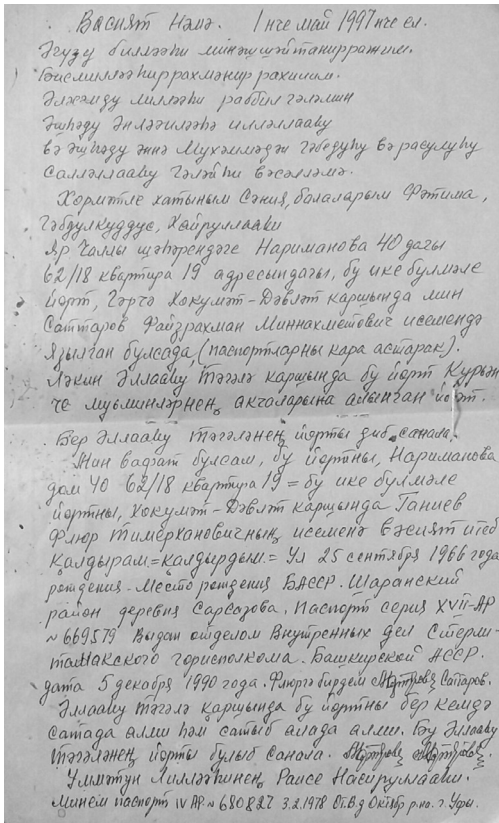 Васият Нәмә. 1 нче май 1997 нче ел.
Әгузу билләәһи минәшшәйтанирражим.
Бисмилләәһиррахмәнир рахиим.
Әлхәмду лилләәһи раббил гәләмин
Әшһәду әнләәиләәһә илләллааһу
вә әшһәду әннә Мухәммәдән гәбедуһу вә расулуһу
Салләллааһу гәләйһи вәсәлләмә.
Хөрмәтле хатыным Сәния, балаларым Фәтима,
Гәбдулкуддус, Хәйруллааһи
Яр Чаллы шәһәрендәге Нариманова 40 дагы
62/18 квартира 19 адресындагы, бу ике бүлмәле
йорт, гәрчә Хөкүмәт-Дәвләт каршында мин
Саттаров Файзрахман Миннахметович исемендә
язылган булсада, (паспортларны кара астарак).
Ләкин Әллааһу тәгәлә каршында бу йорт Курьән
че муьминләрнең акчаларына алынган йорт.
Бер Әллааһу тәгәләнең йорты диб санала.
Мин вафат булсам, бу йортны, Нариманова
дом 40 62/18 квартира 19 = бу ике бүлмәле
йортны, Хөкүмәт-Дәвләт каршында Ганиев
Флюр Тимерхановичның исеменә вәсият итеб
калдырам.=калдырдым.= Ул 25 сентября 1966 года
рождения. Место рождения БАССР. Шаранский
район деревня Сарсазова. Паспорт серия XVII-АР
№ 669579 Выдан отделом Внутренных дел Стерли-
тамакского горисполкома. Башкирской АССР.
дата 5 декабря 1990 года. Флюргә бирдем Саттаров.
Әллааһу тәгәлә каршында бу йортны бер кемдә
сатада алмый һәм сатыб алада алмый. Бу Әллааһу
тәгәләнең йорты булыб санала.
Уммәтун лилләһинең Рәисе Насйруллааһи.
Минем паспорт IV АР № 680827 3.2.1978 От.В.д Октябр р-на. г. Уфы.